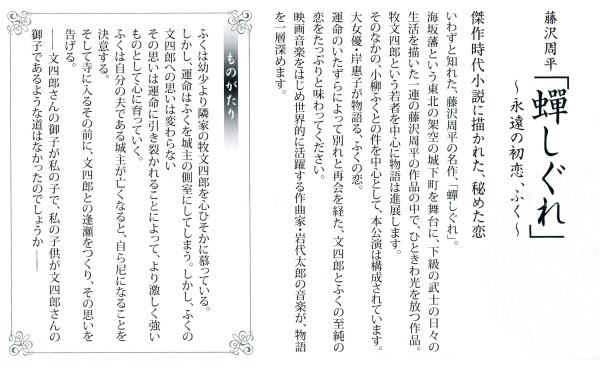 藤沢周平「蟬しぐれ」
～永遠の初恋、ふく～
傑作時代小説に描かれた、秘めた恋
いわずと知れた、藤沢周平の名作、「蟬しぐれ」。
海坂藩という東北の架空の城下町を舞台に、下級の武士の日々の
生活を描いた一連の藤沢周平の作品の中で、ひときわ光を放つ作品。
牧文四郎という若者を中心に物語は進展します。
そのなかの、小柳ふくとの件を中心として、本公演は構成されています。
大女優・岸惠子が物語る、ふくの恋。
運命のいたずらによって別れと再会を経た、文四郎とふくの至純の
恋をたっぷりと味わってください。
映画音楽をはじめ世界的に活躍する作曲家・岩代太郎の音楽が、物語
を一層深めます。
ものがたり
ふくは幼少より隣家の牧文四郎を心ひそかに慕っている。
しかし、運命はふくを城主の側室にしてしまう。しかし、ふくの
文四郎への思いは変わらない
その思いは運命に引き裂かれることによって、より激しく強い
ものとして心に育っていく。
ふくは自分の夫である城主が亡くなると、自ら尼になることを
決意する。
そして寺に入るその前に、文四郎との逢瀬をつくり、その思いを
告げる。
――文四郎さんの御子が私の子で、私の子供が文四郎さんの
御子であるような道はなかったのでしょうか――